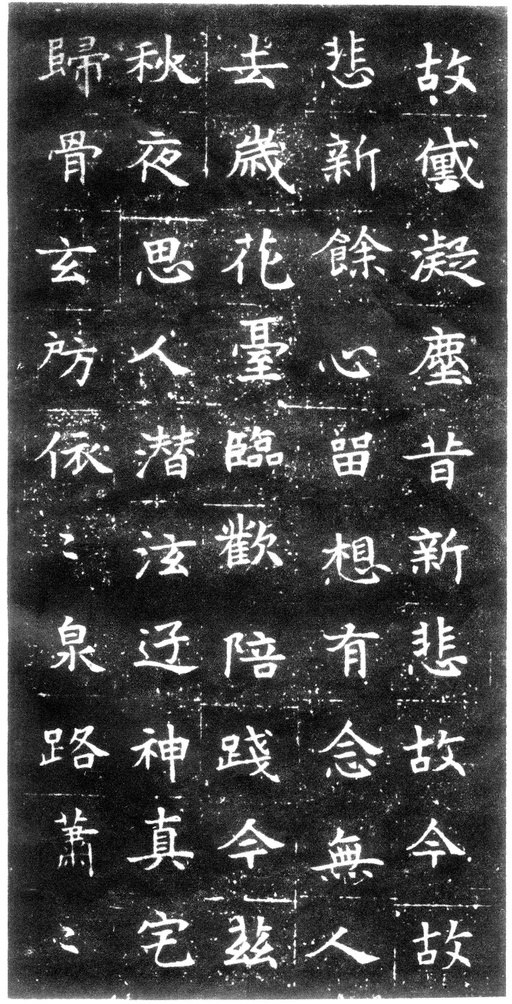 故儎凝塵昔新悲故今故
悲新餘心留想有念無人
去歳花臺臨歡陪踐今茲
秋夜思人潜泫迂神真宅
歸骨玄房依〻泉路蕭〻